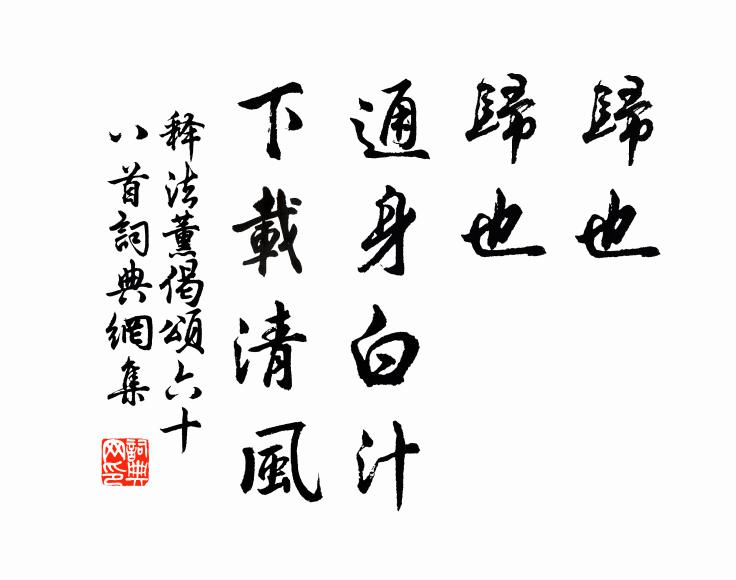 歸也
歸也
通身白汁
下載清風
释法薰偈頌六十
八首詞典網集
詞典
网印